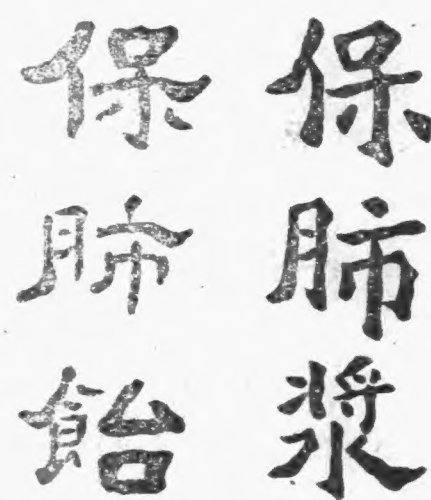 保肺漿
保肺飴